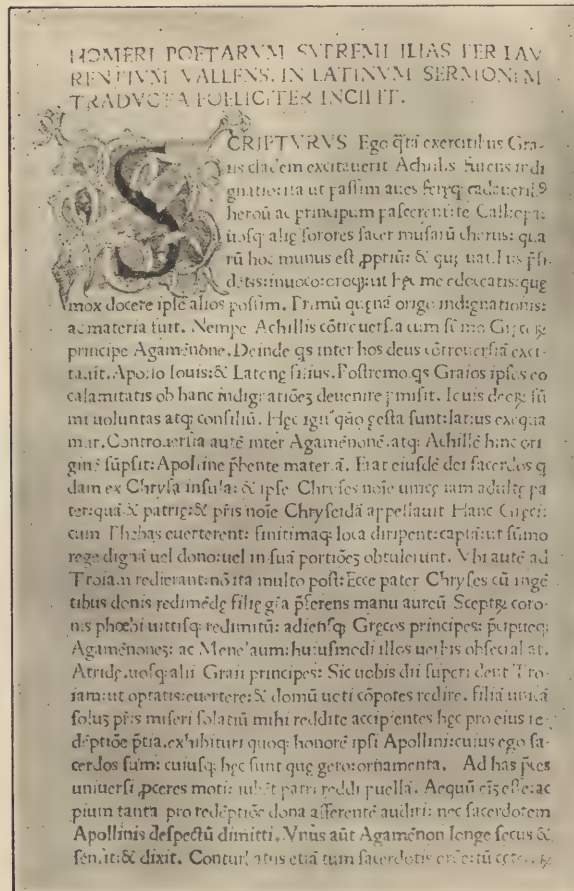 HOMERI POETARVM SVPREMI ILIAS PER LAV
RENTIVM VALLENS. IN LATINVM SERMONEM
TRADVCTA FOELICITER INCIPIT.
SCRIPTVRVS Ego q̃tã exercitibus Gra-
iis cladem excitauerit Achillis furens indi
gnatio: ita ut passim aues feręq; cadauerib9
heroũ ac principum pascerent: te Calliope:
uosq; alię sorores sacer musarũ chorus: qua
rũ hoc munus est ꝓpriũ: & quę uatibus p̃si-
detis: inuoco: oroq; ut hęc me edoceatis: quę
mox docere ipse alios possim. Primũ quęnã origo indignationis:
ac materia fuit. Nempe Achillis cõtrouersia cum sũmo Gręcoꝝ
principe Agamẽnone. Deinde qs inter hos deus cõtrouersiã exci-
tauit. Apollo Iouis: & Latonę filius. Postremo qs Graios ipsos eo
calamitatis ob hanc indignatiõeʒ deuenire ꝑmisit. Iouis deoꝝ sũ
mi uoluntas atq; consiliũ. Hęc igit̃ quo gesta sunt: latius exequa
mur. Controuersia autẽ inter Agamẽnonẽ. atq; Achillẽ hinc ori
ginẽ sũpsit: Apolline p̃bente materiã. Erat eiusdẽ dei sacerdos q
dam ex Chrysa insula: & ipse Chryses noĩe unicę iam adultę pa
ter: quã & patrię: & p̃ris noĩe Chryseidã appellauit Hanc Gręci:
cum Thebas euerterent: finitimaq; loca diriperent: captã: ut sũmo
rege dignã uel dono: uel in suã portiõeʒ obtulerunt. Vbi autẽ ad
Troiam redierant: nõ ita multo post: Ecce pater Chryses cũ ingẽ
tibus donis redimẽdę filię gr̃a p̃ferens manu aureũ Sceptꝝ coro-
nis phœbi uittisq; redimitũ: adiensq; Gręcos principes: p̃cipueq;
Agamẽnoneʒ: ac Menelaum: huiusmodi illos uerbis obsecrabat.
Atridę. uosq; alii Graii principes: Sic uobis dii superi dent Tro-
iam: ut optatis: euertere: & domũ uoti cõpotes redire. filiã unicã
solus p̃ris miseri solatiũ mihi reddite accipientes hęc pro eius re
dẽptiõe p̃tia. exhibituri quoq; honorẽ ipsi Apollini: cuius ego sa-
cerdos sum: cuiusq; hęc sunt quę gero: ornamenta. Ad has p̃ces
uniuersi ꝓceres moti: iubẽt patri reddi puellã. Aequũ eĩʒ esse: ac
pium tanta pro redẽptiõe dona afferentẽ audiri: nec sacerdotem
Apollinis despectũ dimitti. Vnus aũt Agamẽnon longe secus &
sensit: & dixit. Conturbatus etiã tum sacerdotis